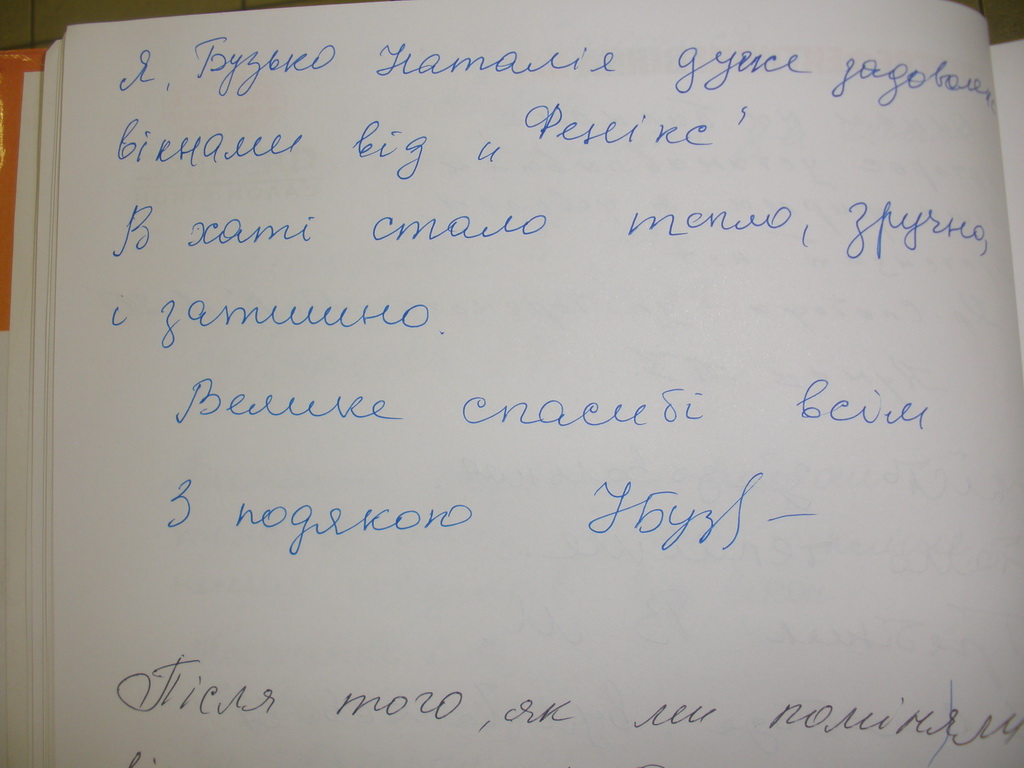 Я, Бузько Наталія дуже задоволена
вікнами від „Фенікс"
В хаті стало тепло, зручно,
і затишно.
Велике спасибі всім
З подякою НБуз
Після того, як ми поміняли